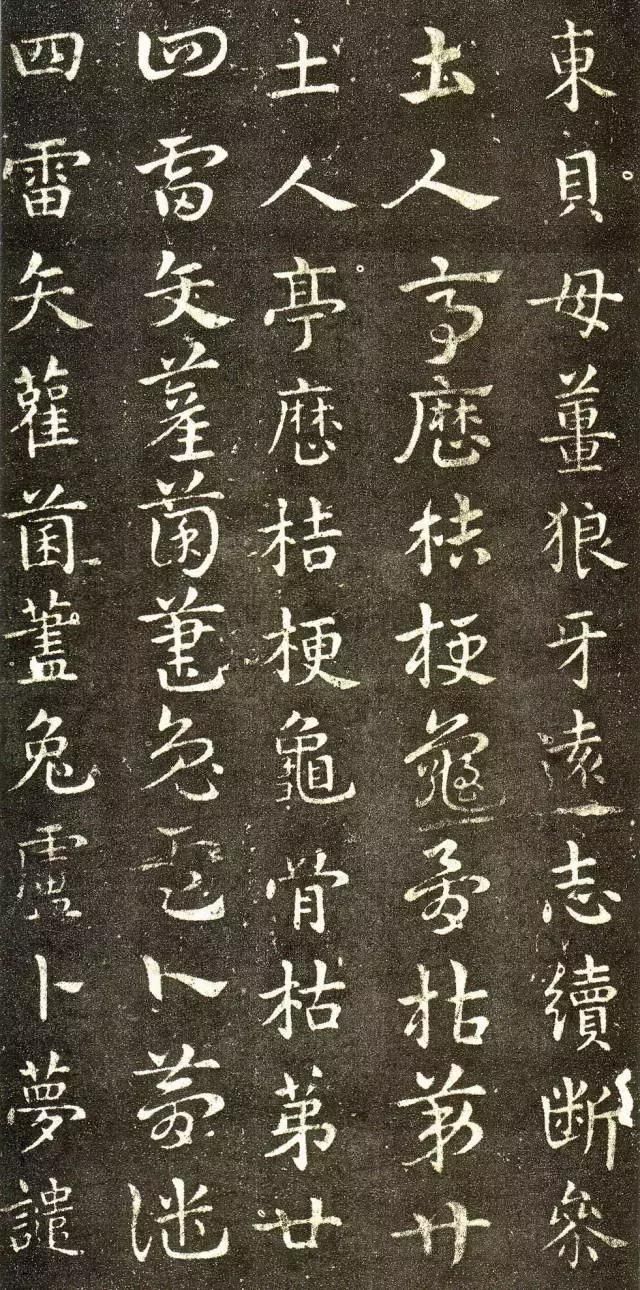 東貝母薑狼牙遠志續断參
土人亭歷桔梗龜骨枯第廿
土人亭歷桔梗龜骨枯第廿
四雷矢雚菌藎兔卜夢譴
四雷矢雚菌藎兔卜夢譴